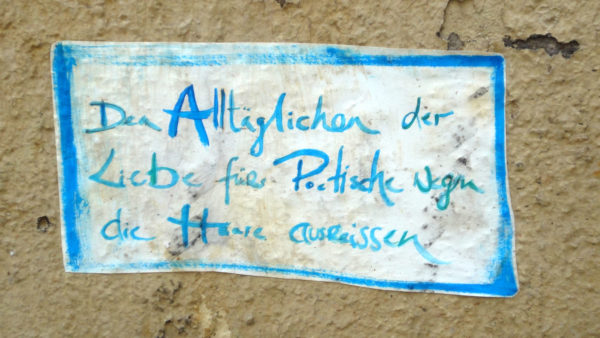 Den Alltäglichen der
Liebe für Poetische
die Haare ausreissen